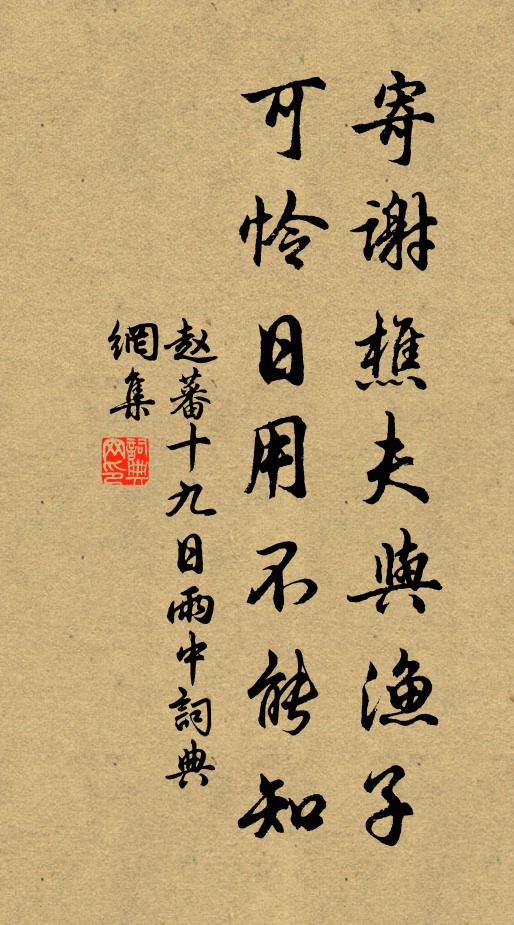 寄谢樵夫與渔子
可怜日用不能知
赵蕃十九日雨中詞典
網集
詞典
网印